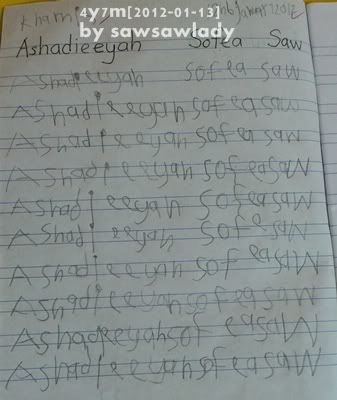 4y7m[2012-01-13]
by sawsawlady
Ashadieeyah Sofea Saw
Ashadieeyah sofea saw
Ashadieeyah sofea saw
Ashadieeyah sofea saw
Ashadieeyah sofeasaw
Ashadieeyah sofeasaw
Ashadieeyah sofeasaw
Ashadieeyah sofeasaw
Ashadieeyah sofeasaw
Ashadieeyahsofeasaw
Ashadieeyahsofeasaw